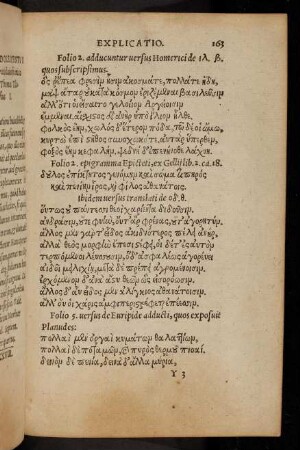 EXPLICATIO. 163
Folio 2. adducuntur versus Homerici de ιλ. β.
quos subscripsimus.
ὃς ῥ' ἔπεα φρεσὶν ᾗσιν ἄκοσμά τε, πολλά τε ᾔδη,
μὰψ ἀτὰρ οὐ κατὰ κόσμον ἐριζέμεναι βασιλεῦσιν
ἀλλ' ὅ τι οἱ εἴσαιτο γελοίιον Ἀργείοισιν
ἔμμεναι, αἴσχιστος δ' ἀνὴρ ὑπὸ ἴλιον ἦλθε,
φολκὸς ἔην, χωλὸς δ' ἕτερον πόδα, τὼ δέ οἱ ὤμω,
κυρτὼ ἐπὶ στῆθος συνοχωκότε, αὐτὰρ ὕπερθεν,
φοξὸς ἔην κεφαλὴν, ψεδνὴ δ' ἐπενήνοθε λάχνη.
Folio 2. epigramma Epicteti, ex Gellii lib. 2. ca. 18.
δοῦλος ἐπίκτητος γενόμην καὶ σῶμα
καὶ πενίην ἶρος, καὶ φίλος ἀθανάτοις.
Ibidem versus translati de οδ. θ.
οὕτως οὐ πάντεσσι θεοὶ χαρίεντα διδοῦσιν,
ἀνδράσιν, οὔτε φυὴν, οὔτ' ἂρ φρένας, οὔτ' ἀγορητύν,
ἄλλος μὲν γάρ τ' εἶδος ἀκιδνότερος πέλει ἀνὴρ,
ἀλλὰ θεὸς μορφὴν ἔπεσι στέφει, οἱ δέ τ' ἐς αὐτὸν
τερπόμενοι λεύσσουσιν, ὁ δ' ἀσφαλέως ἀγορεύει
αἰδοῖ μειλιχίῃ, μετὰ δὲ πρέπει ἀγρομένοισιν,
ἐρχόμενον δ' ἀνὰ ἄστυ θεὸν ὣς εἰσορόωσιν,
ἄλλος δ' αὖ εἶδος μὲν ἀλίγκιος ἀθανάτοισιν,
ἀλλ' οὔ οἱ χάρις ἀμφιπεριστέφεται ἐπέεσσιν.
Folio 5. versus de Euripide adducti, quos exposuit
Planudes:
πολλαὶ μὲν ὀργαὶ κυμάτων θαλασσίων,
πολλαὶ δὲ ποταμῶν, καὶ πυρὸς θερμοῦ πνοαί.
δεινὸν δὲ πενία, δεινὰ δ' ἄλλα μύρια,
Y 3